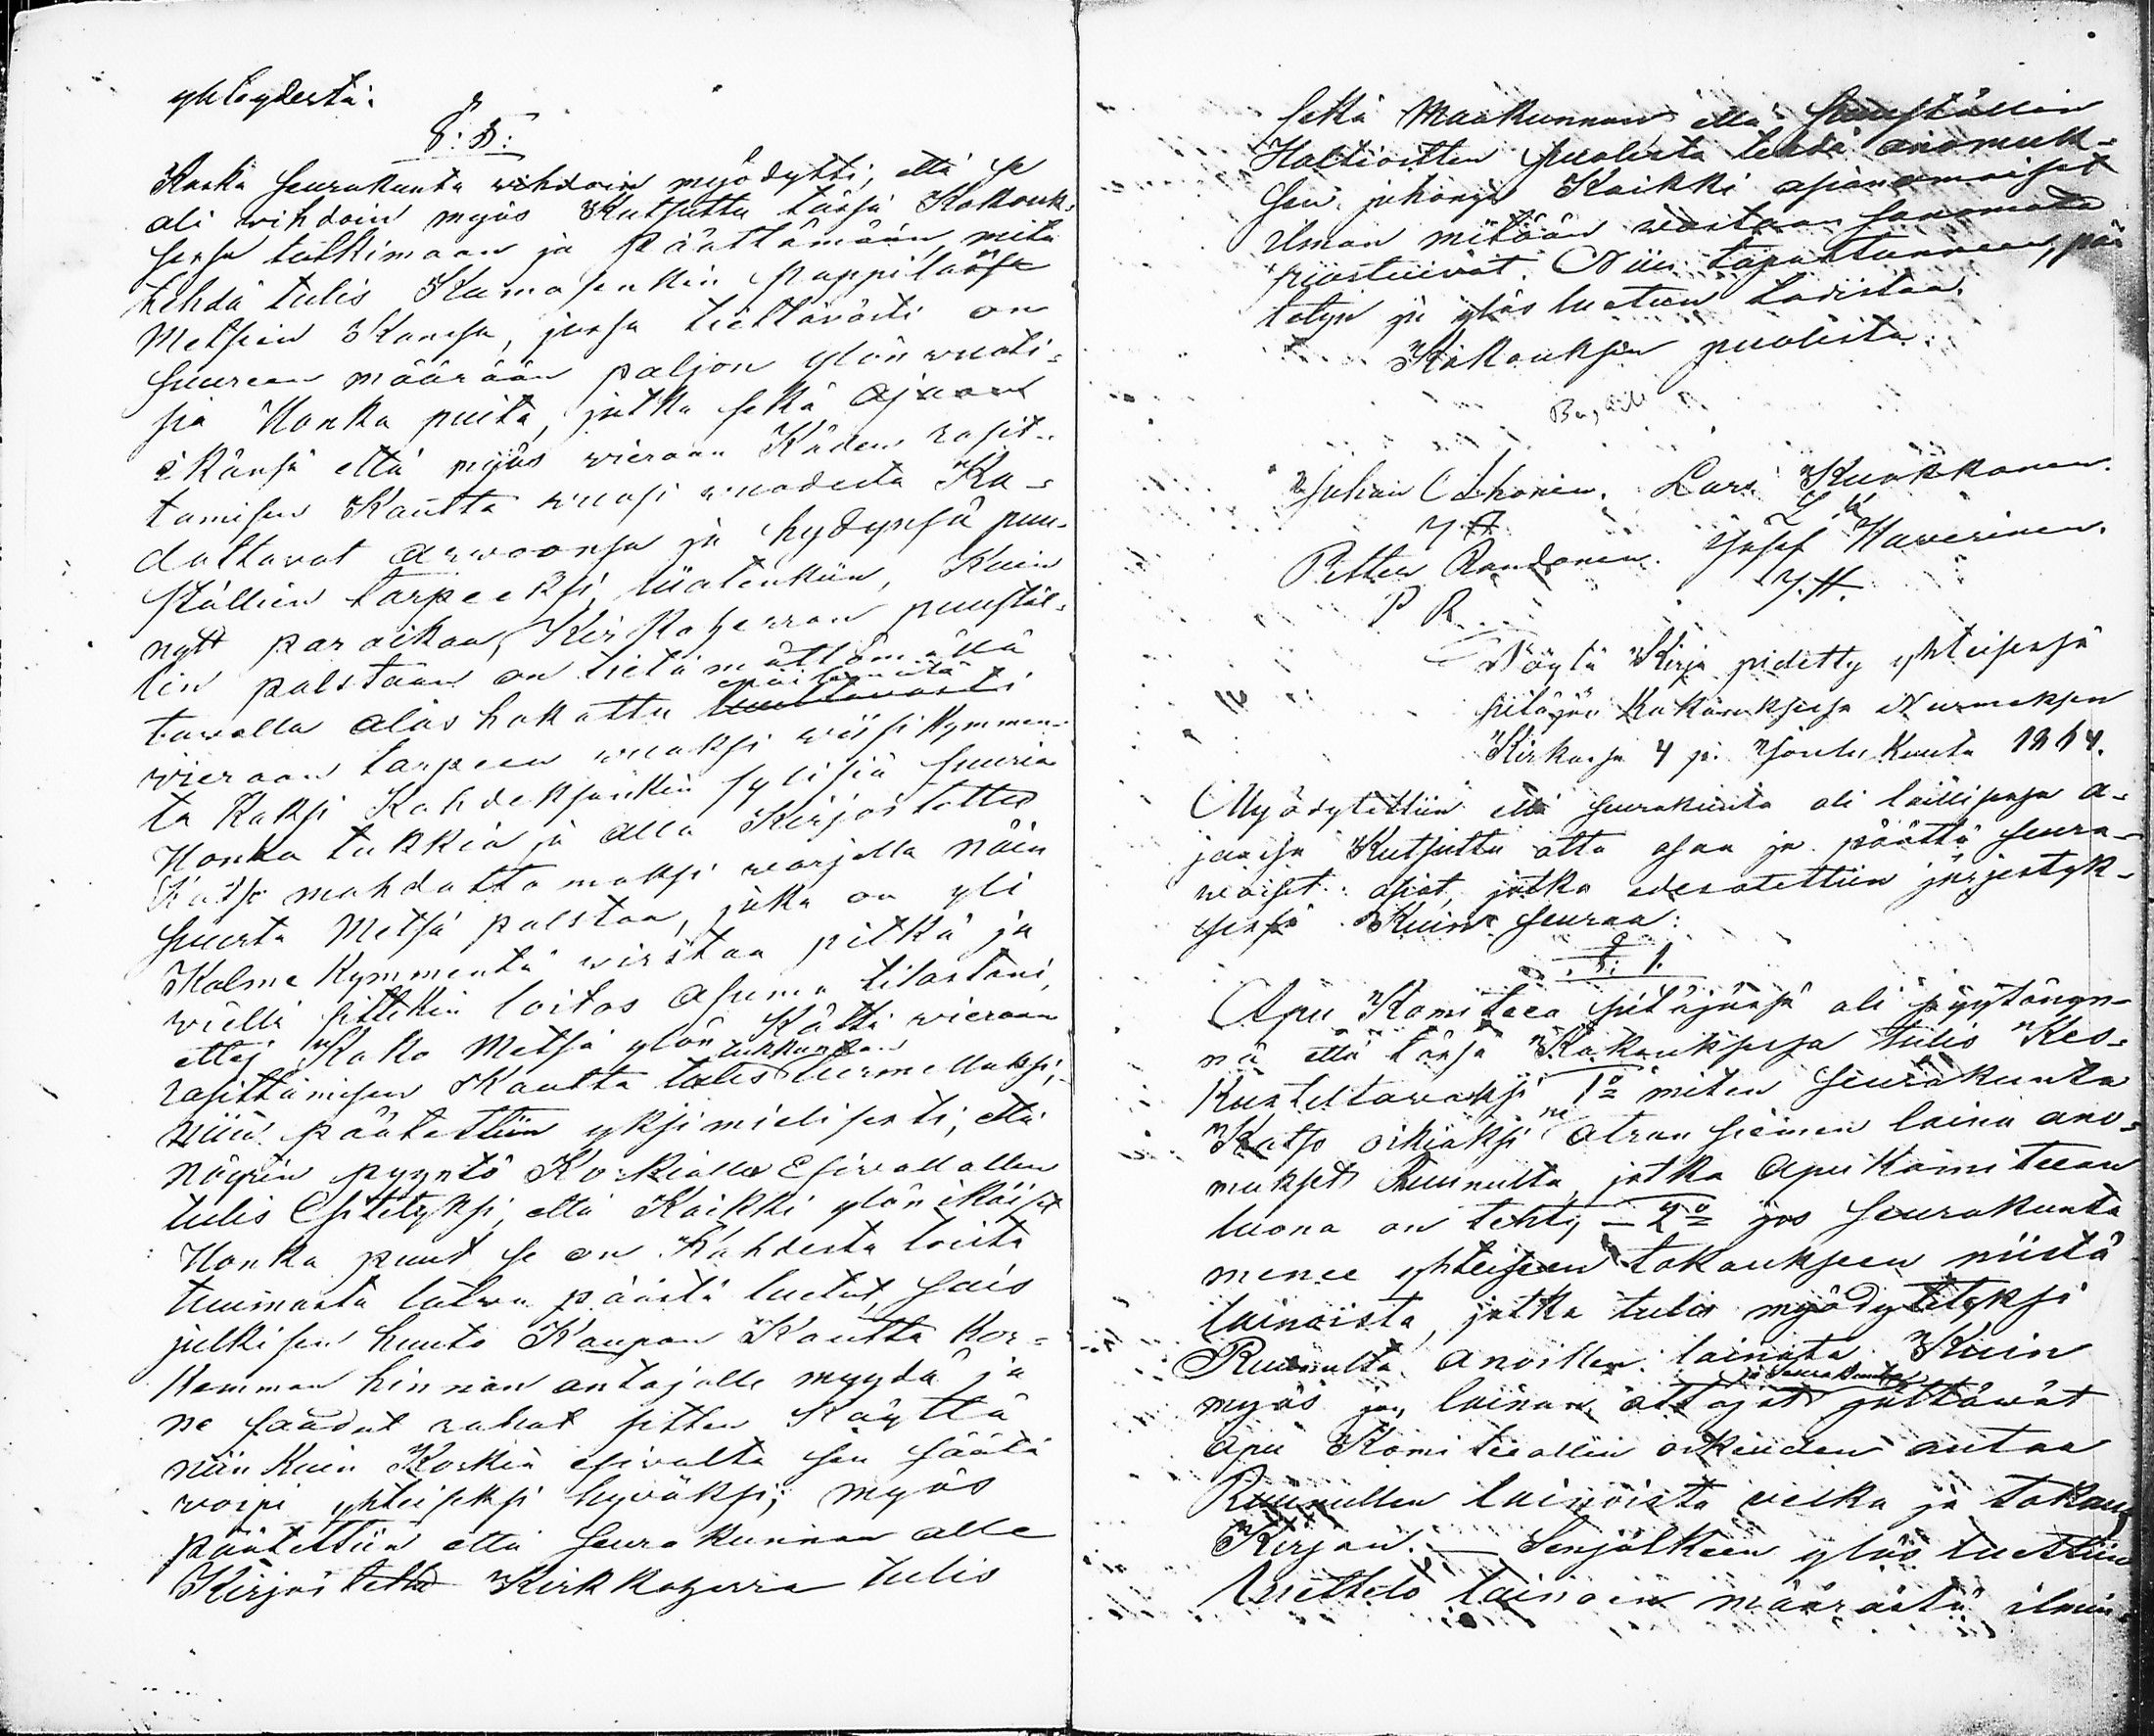 yhteydestä.
§: 5:
Koska seurakunta wihdoin myödytti, että se
oli wihdoin myös Kutsuttu tässä Kokouk-
sessa tutkimaan ja Päättämään, mitä
tehdä tulis Kumasenkin Pappilan
Metsien Kanssa, jossa tiettäwästi on
suureen määrään paljon ylön wuoti-
sia Honka puita, jotka sekä ajaan
ikänsä että myös wieraan Käden rasit-
tamisen Kautta wuosi wuodesta Ka-
dottavat arwoonsa ja hyötynsä puu-
ställien tarpeeksi, liiatenkin, Kuin
nytt paraikaa, Kirkoherran puustäl-
lin palstaan on tietämättömällä
tawalla alas hakattu luultavasti
wieraan tarpeen wuoksi wiisi Kymmen-
tä Kaksi Kahdeksankin sylisiä suuria
Honka tukkia ja alla Kirjoitettu
Katso mahdottomaksi warjella näin
suurta Metsä palstaa, joka on yli
Kolme Kymmentä wirstaa pitkä ja
wielä sittekin loitos asuma tilastani,
ettej Koko Metsä ylön Kätti wieraan
rasittamisen Kautta tulis turmelluksi,
niin päätettiin yksimielisesti, että
nöyrin pyyntö Korkialle Esiwallallen
tulis Esitetyksi, että Kaikki ylön ikäiset
Honka puut se on Kahdesta toista
tuumasta latwa päästä luetut, sais
julkisen huuto Kaupan Kautta Kor-
kemman hinnan antajalle myydä ja
ne saadut rahat sitten Käyttä
niin Kuin Korkia esivalta sen säätä
woipi yhteiseksi hyväksi; myös
päätettiin että seurakunnan alle
Kirjoitettu Kirkkoherra tulis
sekä Maakunnan että Puuställin
Haltioitten puolesta tehdä anomuk-
sen, johonga Kaikki asianomaiset
ilman mitään wastaan sanomata
suostuivat. Niin tapahtuneen, pää
tetyn ja ylös luetun todistaa.
Kokouksen puolesta.
Juhan Ihonin. Lars Kuokkanen.
L K
Petter Rautanen. Josef Kaverinen.
P R
Pöytä Kirja pidetty yhteisessä
pitäjän Kokouksessa Nurmeksen
Kirkossa 4 p: Joulu Kuuta 1864.
Myödytettiin että seurakunta oli laillisessa a-
jassa Kutsuttu otta osaa ja päättä seura-
waiset asiat, jotka edesotettiin järjestyk-
sessä Kuin seuraa:
§: 1.
Apu Komitea pitäjässä oli pyytänyn-
nä että tässä Kokouksessa tulis Kes-
kusteltavaksi 1o miten seurakunta
Katso oikiaksi ne otran siemen laina ano-
mukset Ruunulta, jotka Apu Komiteean
luona on tehty, — 2o jos seurakunta
menee yhteiseen takaukseen niistä
lainoista, jotka tulis myödytetyksi
Ruunulta anoillen lainata Kuin
ja seurakunta
myös jos lainan ottajat jättäwät
Apu Komiteallen oikeuden antaa
Ruunullen lainoista velka ja takaus
Kirjan. — Senjälkeen ylös luettiin
luettelo lainoin määrästä ilman-